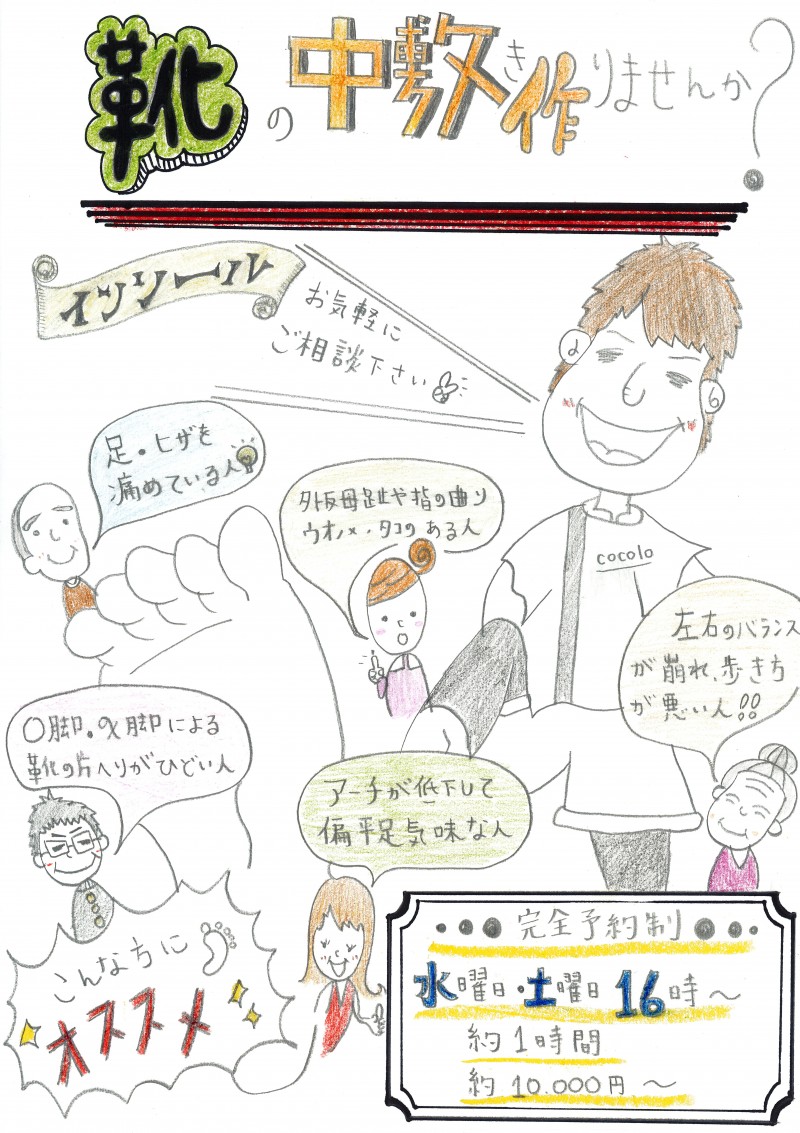 靴の中敷き作りませんか?
インソール
お気軽に
ご相談下さい
足・ヒザを
痛めている人
外反母趾や指の曲り
ウオノメ・タコのある人
cocolo
左右のバランス
が崩れ、歩き方
が悪い人!!
O脚・X脚による
靴の片へりがひどい人
アーチが低下して
偏平足気味な人
こんな方に
オススメ
完全予約制
水曜日・土曜日16時～
約1時間
約10.000円～